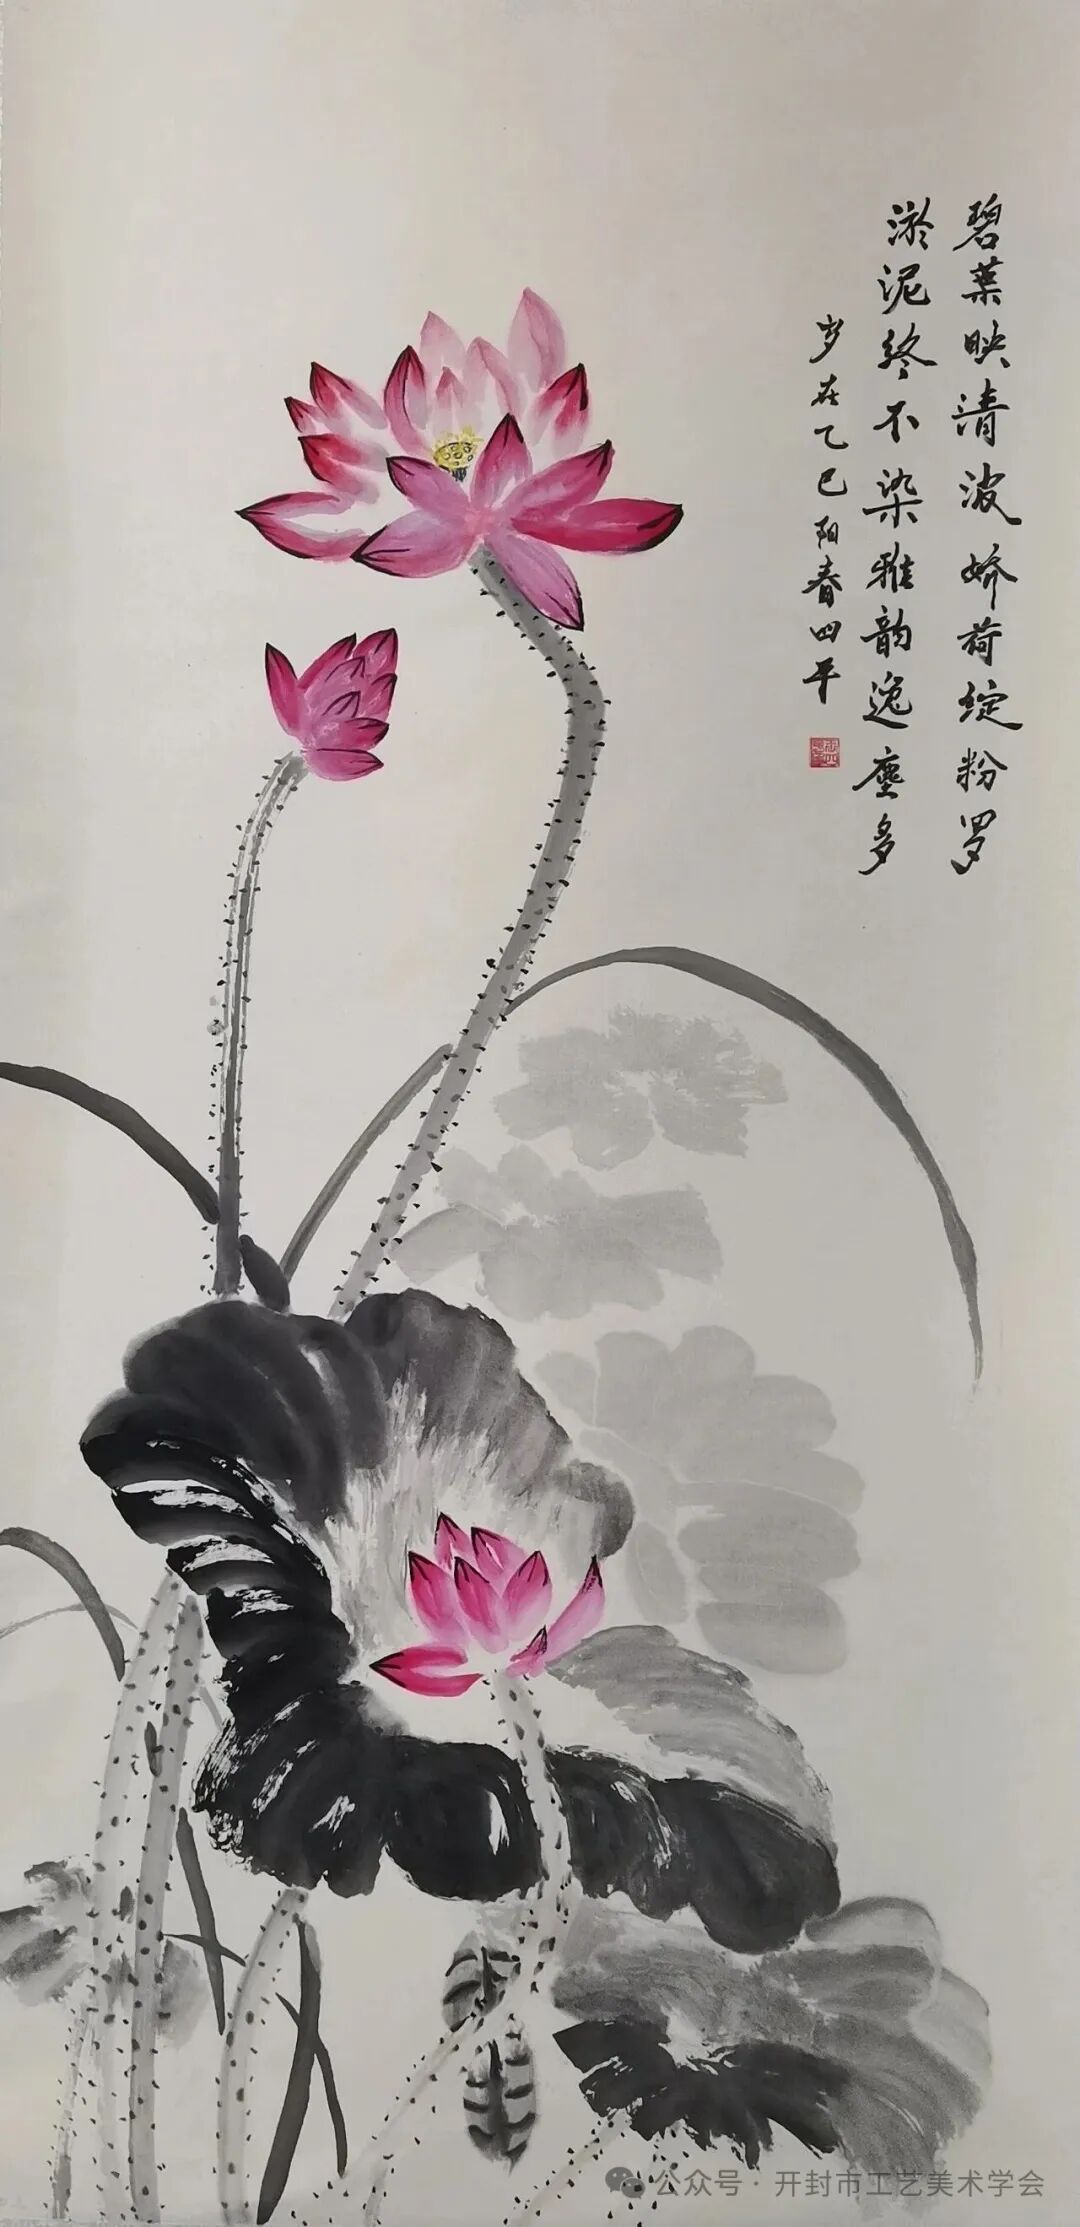 碧葉映清波娇荷绽粉罗
淤泥终不染雅韵逸塵多
岁在乙巳阳春四平
公众号·开封市工艺美术学会